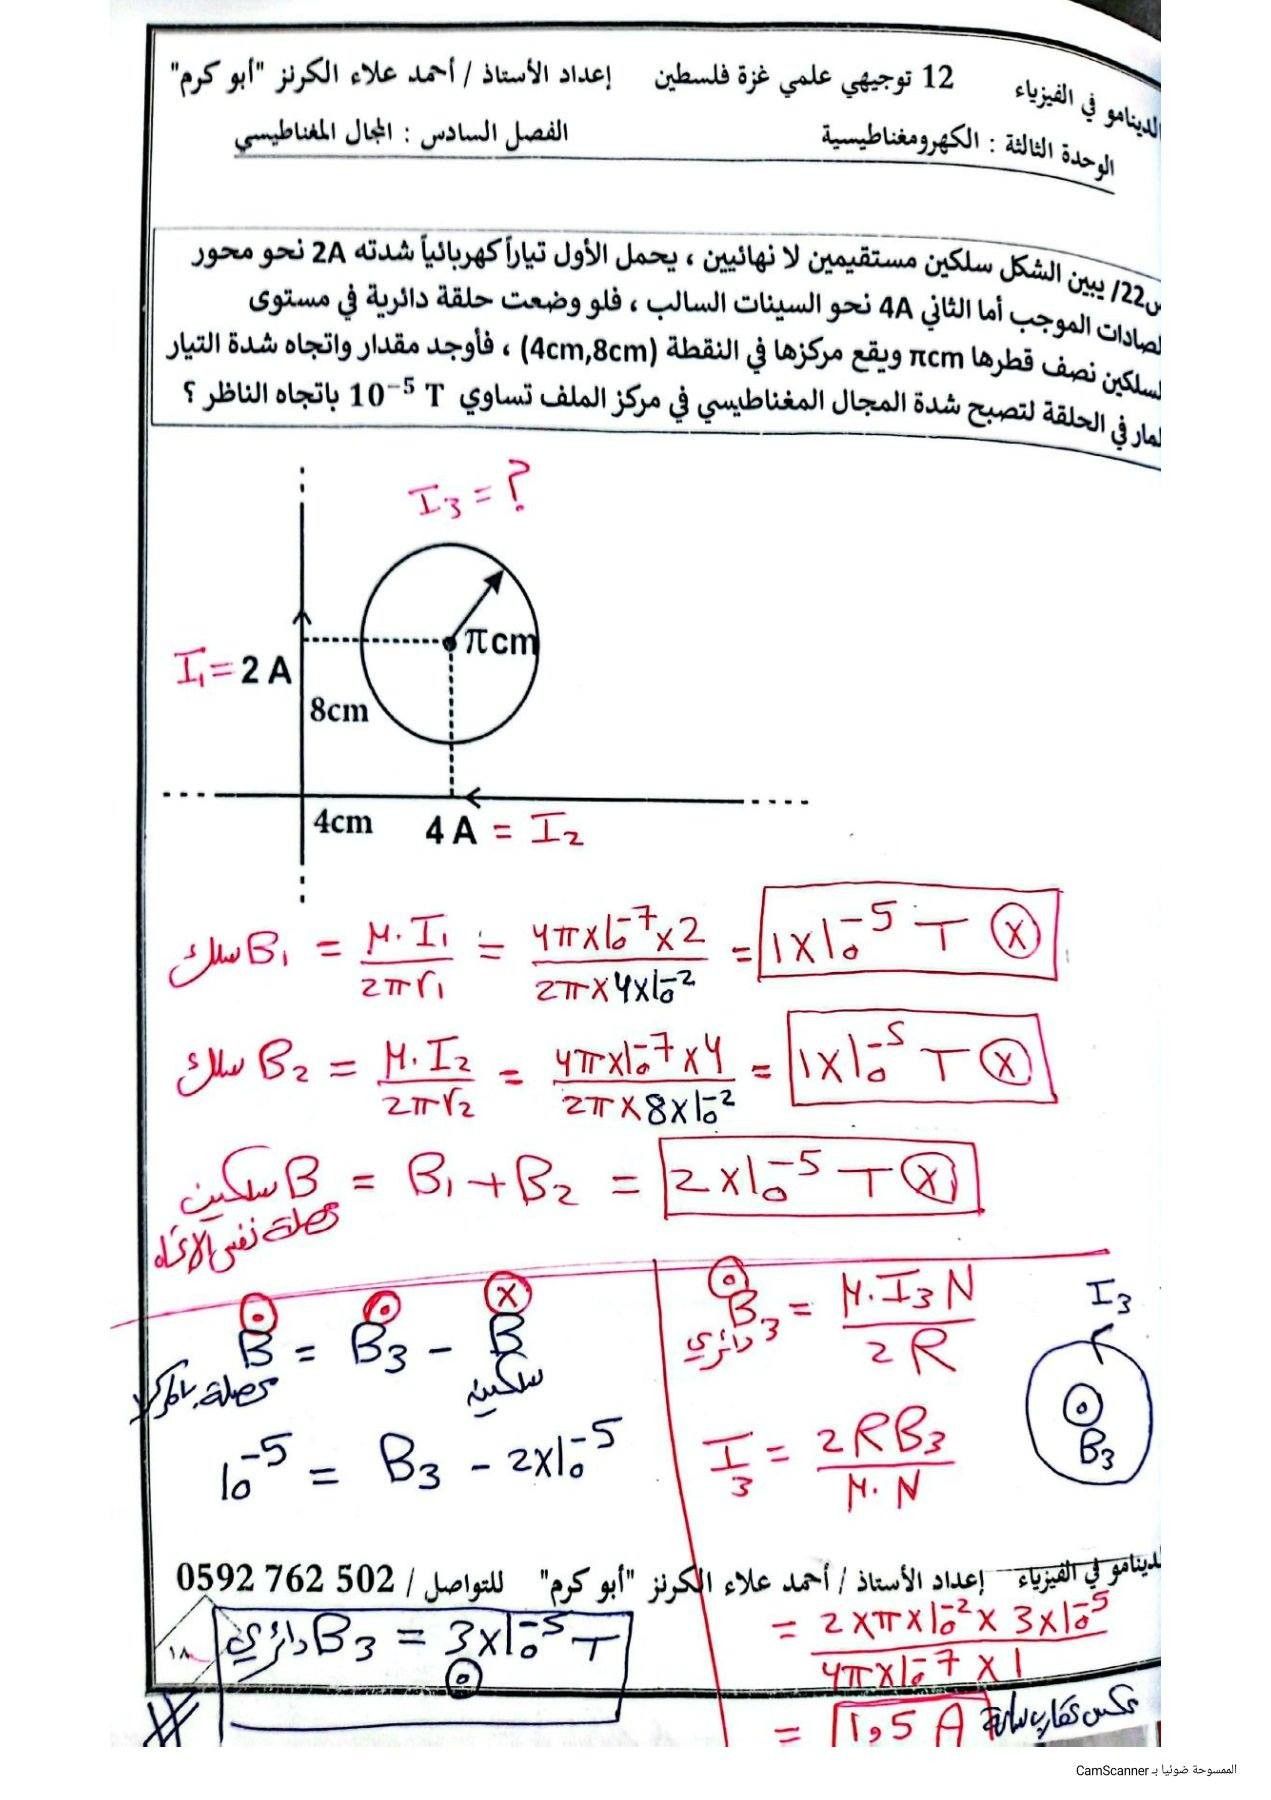 الدينامو في الفيزياء 12 توجيهي علمي غزة فلسطين إعداد الأستاذ / أحمد علاء الكرنز "أبو كرم"
الوحدة الثالثة : الكهرومغناطيسية الفصل السادس : المجال المغناطيسي
س22/ يبين الشكل سلكين مستقيمين لا نهائيين ، يحمل الأول تياراً كهربائياً شدته 2A نحو محور
لصادات الموجب أما الثاني 4A نحو السينات السالب ، فلو وضعت حلقة دائرية في مستوى
لسلكين نصف قطرها πcm ويقع مركزها في النقطة (4cm,8cm) ، فأوجد مقدار واتجاه شدة التيار
لمار في الحلقة لتصبح شدة المجال المغناطيسي في مركز الملف تساوي 10⁻⁵ T باتجاه الناظر ؟
I₃ = ?
πcm
I₁ = 2 A
8cm
4cm
4 A = I₂
سلك B₁ = μ. I₁ / 2πr₁ = 4π×10⁻⁷×2 / 2π×4×10⁻² = 1×10⁻⁵ T ⓧ
سلك B₂ = μ. I₂ / 2πr₂ = 4π×10⁻⁷×4 / 2π×8×10⁻² = 1×10⁻⁵ T ⓧ
سلكين B = B₁ + B₂ = 2×10⁻⁵ T ⓧ
محصلة نفس الاتجاه
⊙ B = ⊙ B₃ - ⓧ B
سلكين
10⁻⁵ = B₃ - 2×10⁻⁵
⊙ B₃ = μ. I₃ N / 2R
دائري
I₃
⊙
B₃
I₃ = 2RB₃ / μ. N
لدينامو في الفيزياء إعداد الأستاذ / أحمد علاء الكرنز "أبو كرم" للتواصل / 0592 762 502
= 2×π×10⁻²×3×10⁻⁵ / 4π×10⁻⁷×1
دائري B₃ = 3×10⁻⁵ T
⊙
١٨
= 1,5 A عكس عقارب ساعة
الممسوحة ضوئيا بـ CamScanner